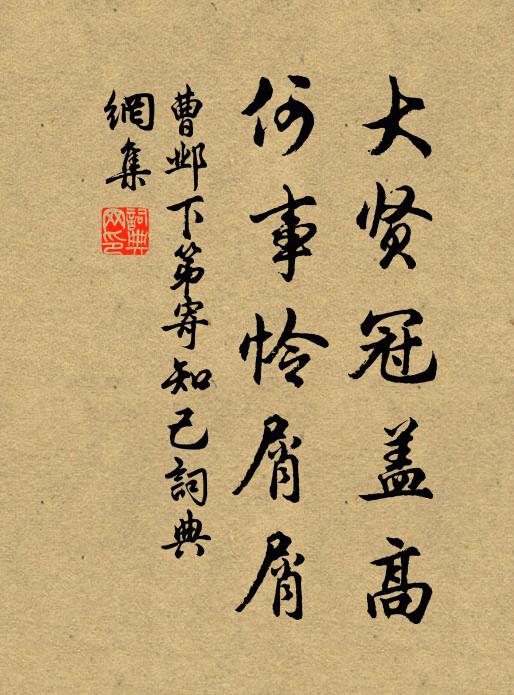 大贤冠盖高
何事怜屑屑
曹邺下第寄知己詞典
網集
詞典網印